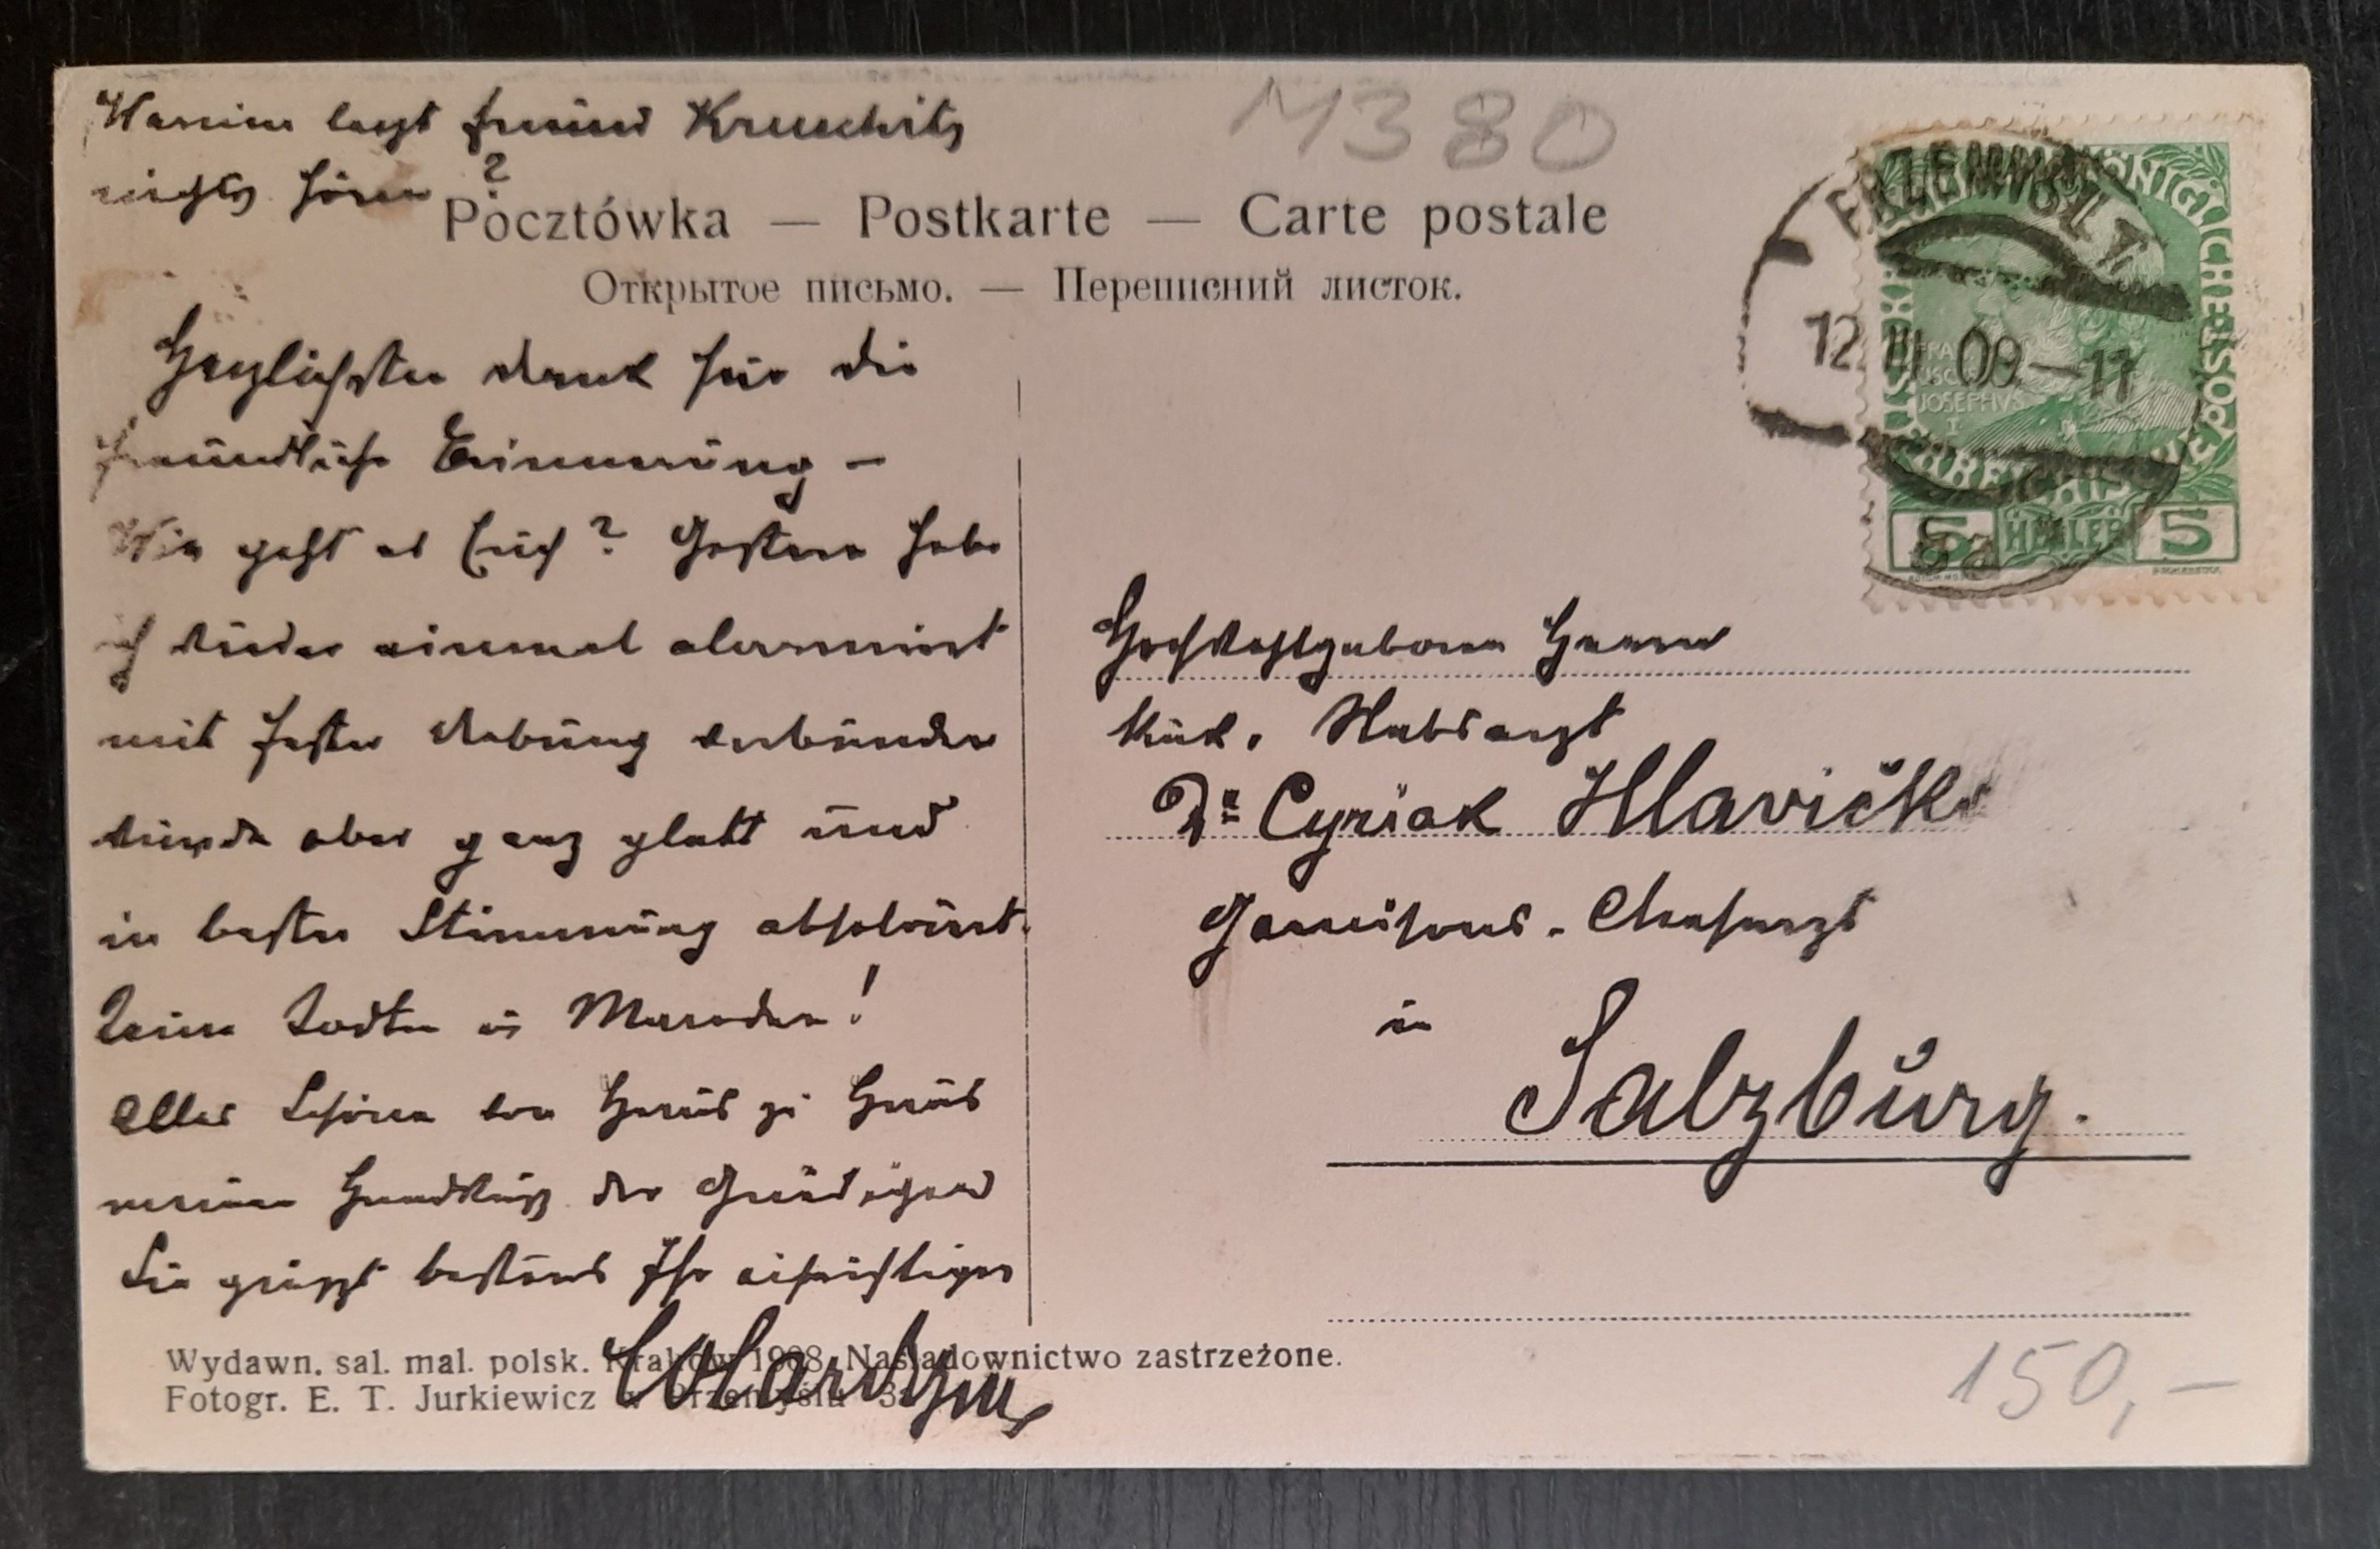 Warum lasst Freund
nichts hören?
M380
Pocztówka — Postkarte — Carte postale
Открытое письмо. — Переписний листок.
PRZEMYŚL 1
12 III 09 — 11
5 HELLER 5
FRANCISCVS JOSEPHVS I
Herzlichsten Dank für die
freundliche Erinnerung —
Wie geht es Euch? Gestern habe
ich wieder einmal alarmiert
mit fester Uebung verbunden
wurde aber ganz glatt und
in bester Stimmung absolviert.
Keine Todten u Maroden!
Alles Schöne von Haus zu Haus
meinen Handkuss der Gnädigen
Sie grüsst bestens Ihr aufrichtiger
Hochwohlgeboren Herrn
kuk. Stabsarzt
Dr Cyriak Hlavička
Garnisons-Chefarzt
in
Salzburg.
Wydawn. sal. mal. polsk. Kraków 1908. Naśladownictwo zastrzeżone.
Fotogr. E. T. Jurkiewicz w Przemyślu
150,—